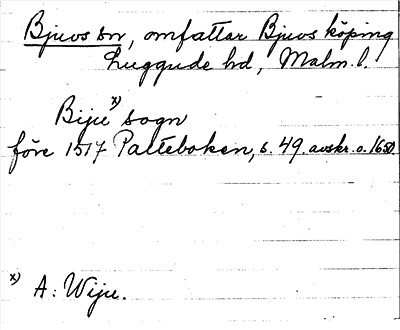 Bjuvs sn, omfattar Bjuvs köping
Luggude hd, Malm. l.
Biju x) sogn
före 1517 Palteboken, s. 49. avskr. o. 1650.
x) A: Wiju.